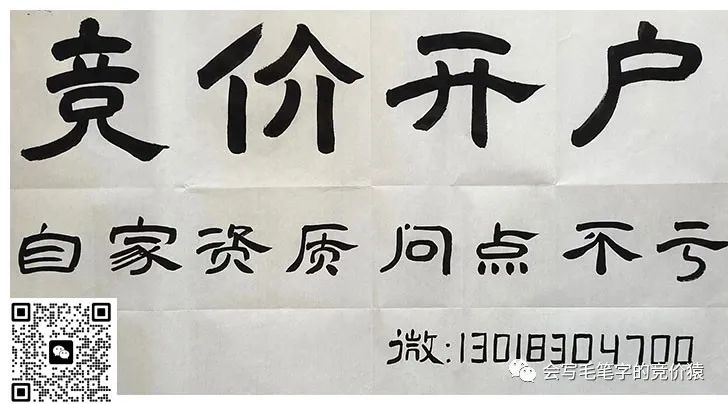 竞价开户
自家资质问点不亏
微:13018304700
会写毛笔字的竞价猿